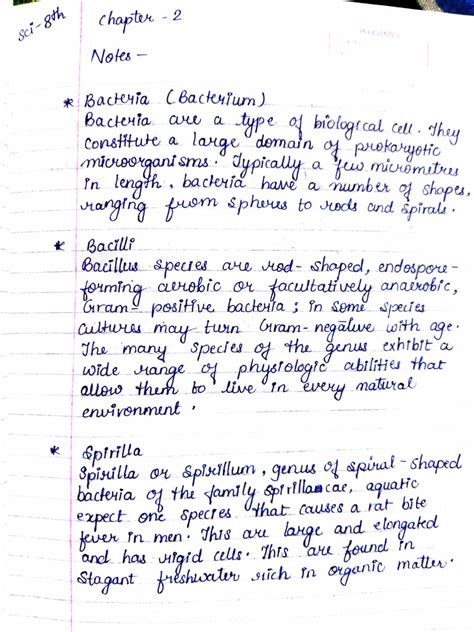 Sci-8th
Chapter - 2
Notes -
* Bacteria (Bacterium)
Bacteria are a type of biological cell. They
constitute a large domain of prokaryotic
microorganisms. Typically a few micrometres
in length, bacteria have a number of shapes,
ranging from spheres to rods and spirals.
* Bacilli
Bacillus species are rod-shaped, endospore-
forming aerobic or facultatively anaerobic,
Gram-positive bacteria; in some species
cultures may turn Gram-negative with age.
The many species of the genus exhibit a
wide range of physiologic abilities that
allow them to live in every natural
environment.
* Spirilla
Spirilla or spirillum, genus of spiral-shaped
bacteria of the family spirillaceae, aquatic
expect one species that causes a rat bite
fever in men. This are large and elongated
and has rigid cells. This are found in
Stagant freshwater rich in organic matter.